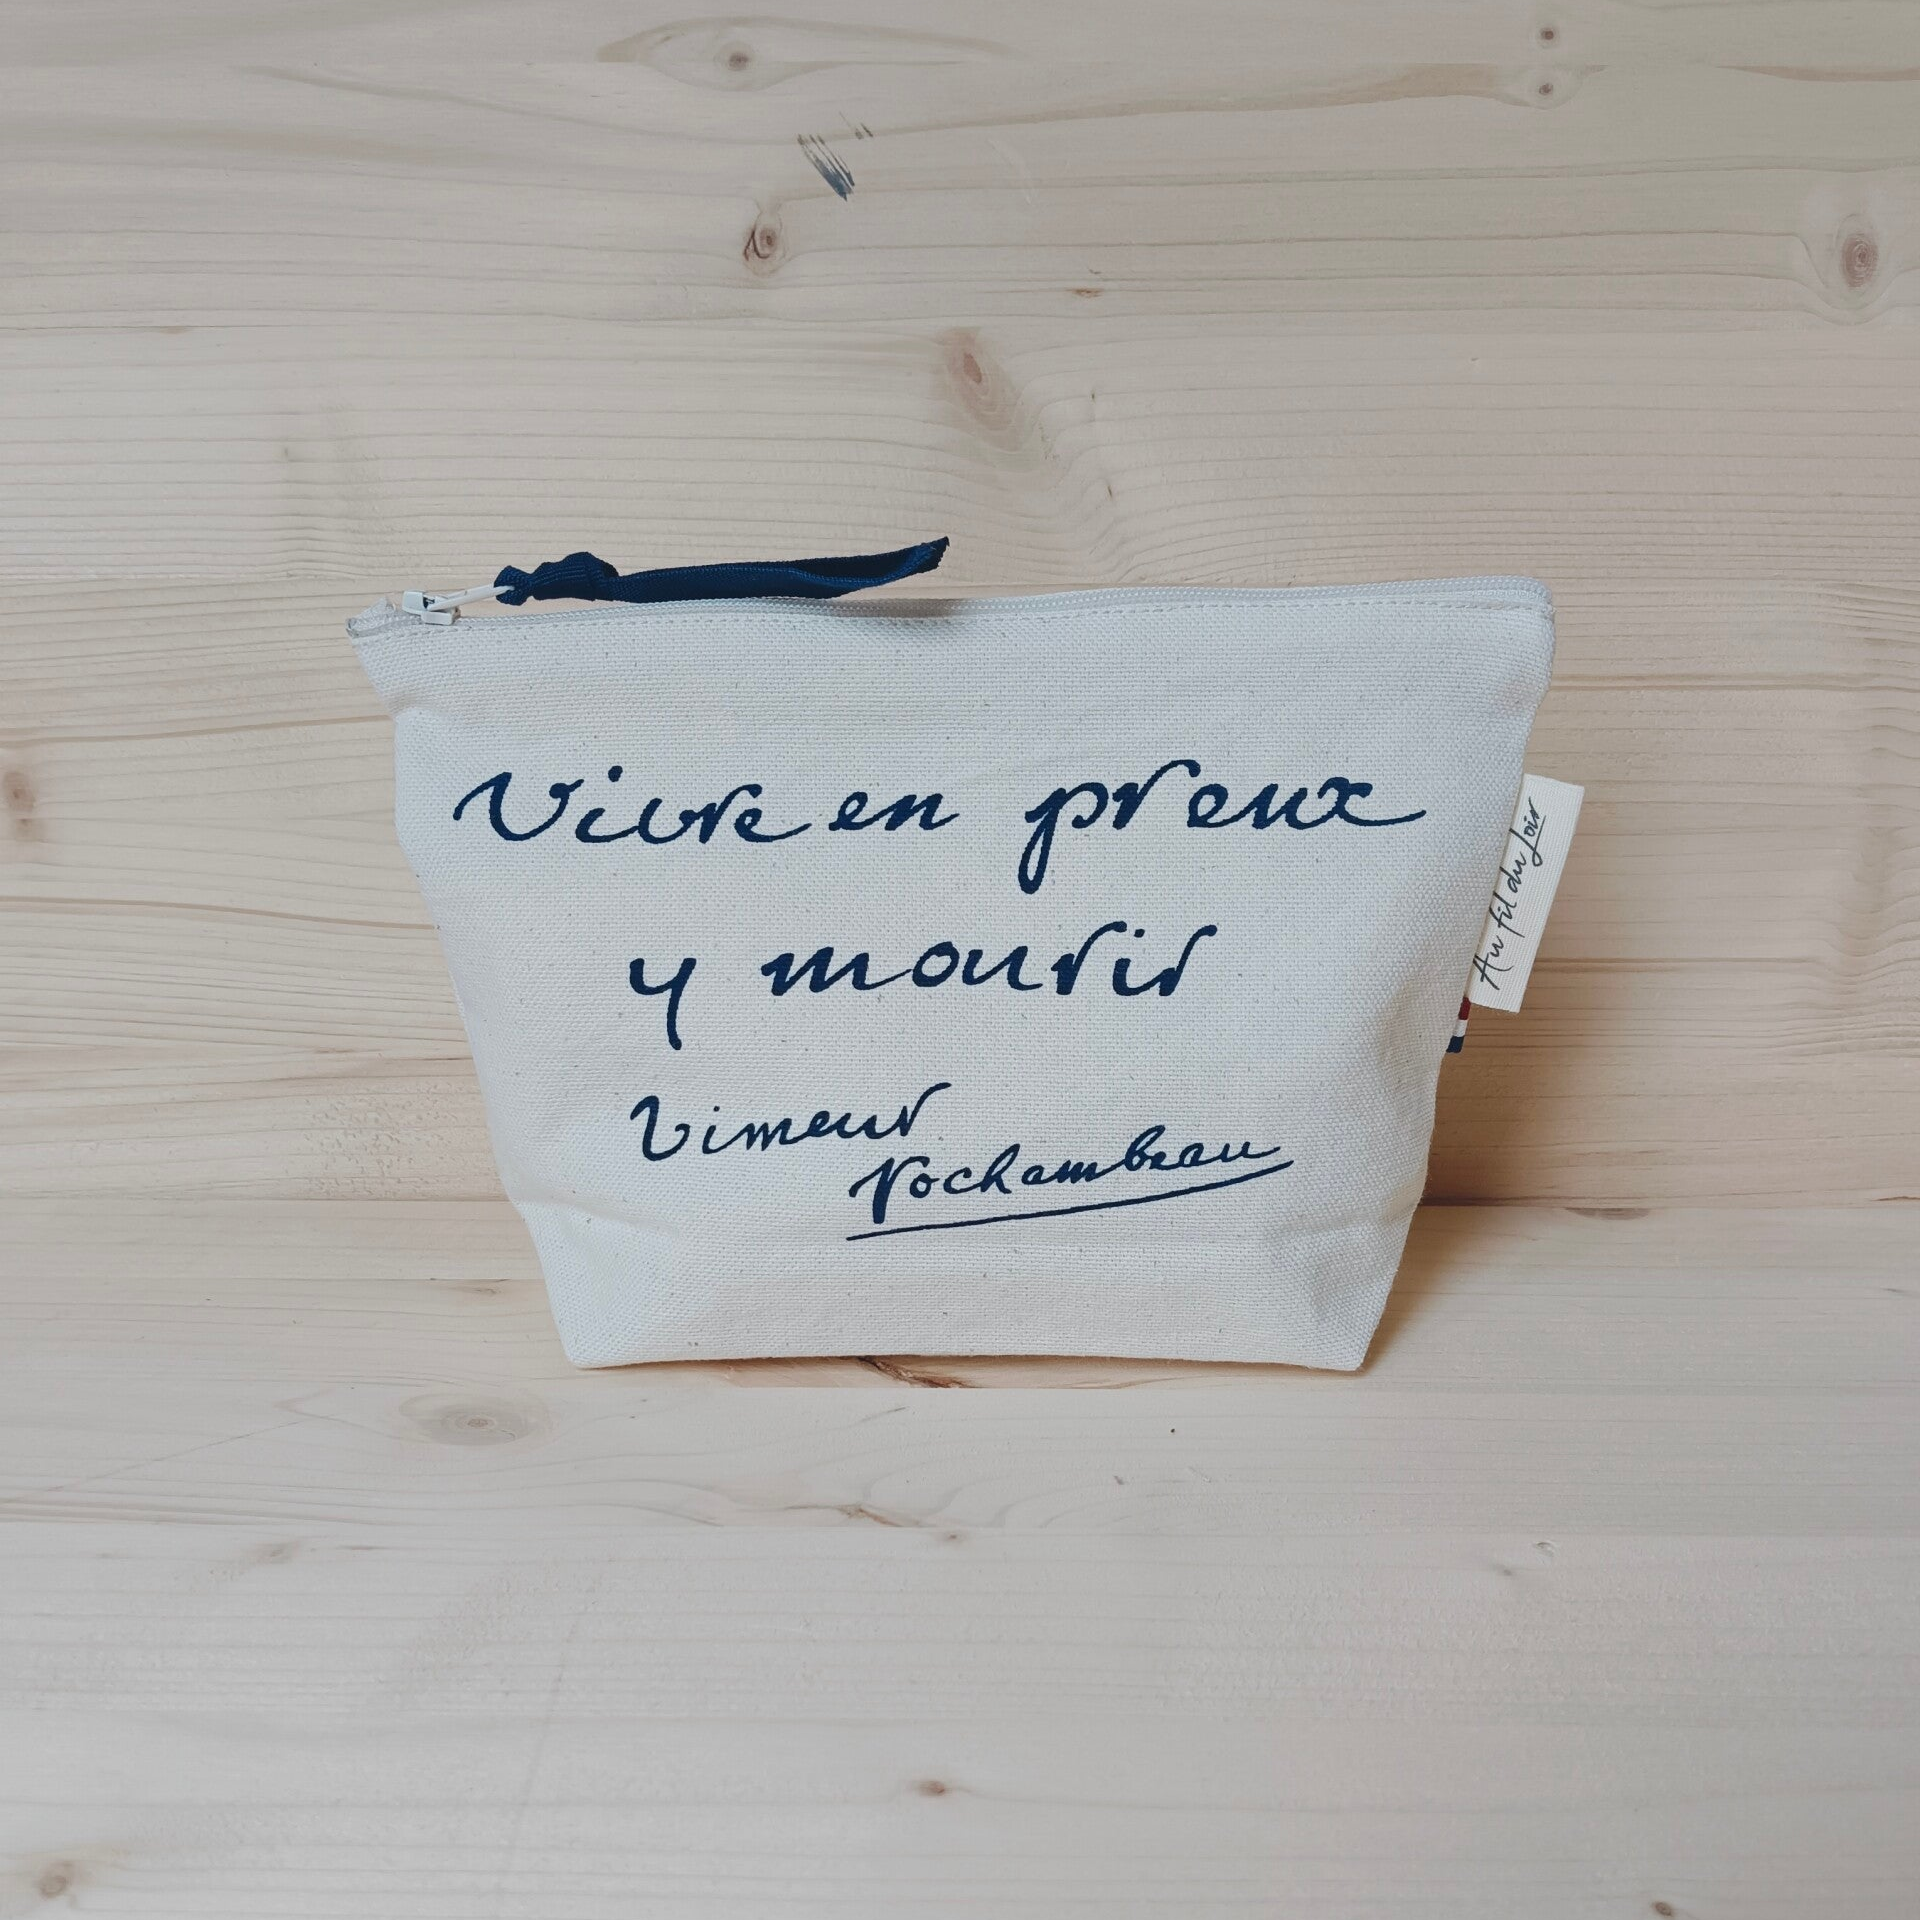 Vivre en preux
y mourir
Vimeur
Rochambeau
Au fil du Loir